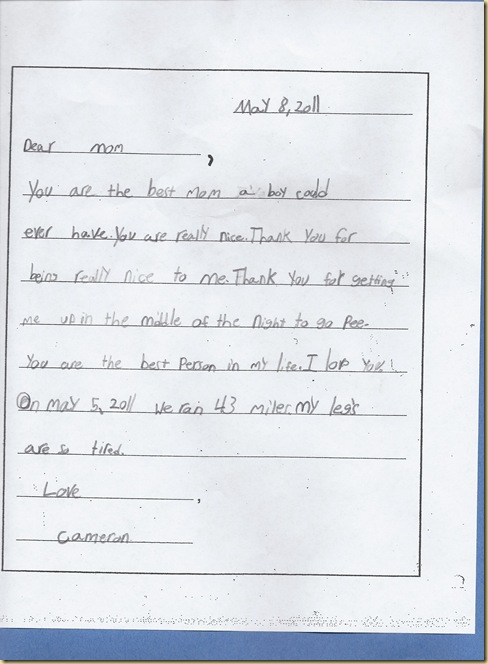 May 8, 2011
Dear mom,
You are the best Mom a boy could
ever have. You are really nice. Thank You for
being really nice to me. Thank You for getting
me up in the middle of the night to go Pee.
You are the best Person in my life. I love You!
On May 5, 2011 we ran 43 miles. my leg's
are so tired.
Love,
Cameron